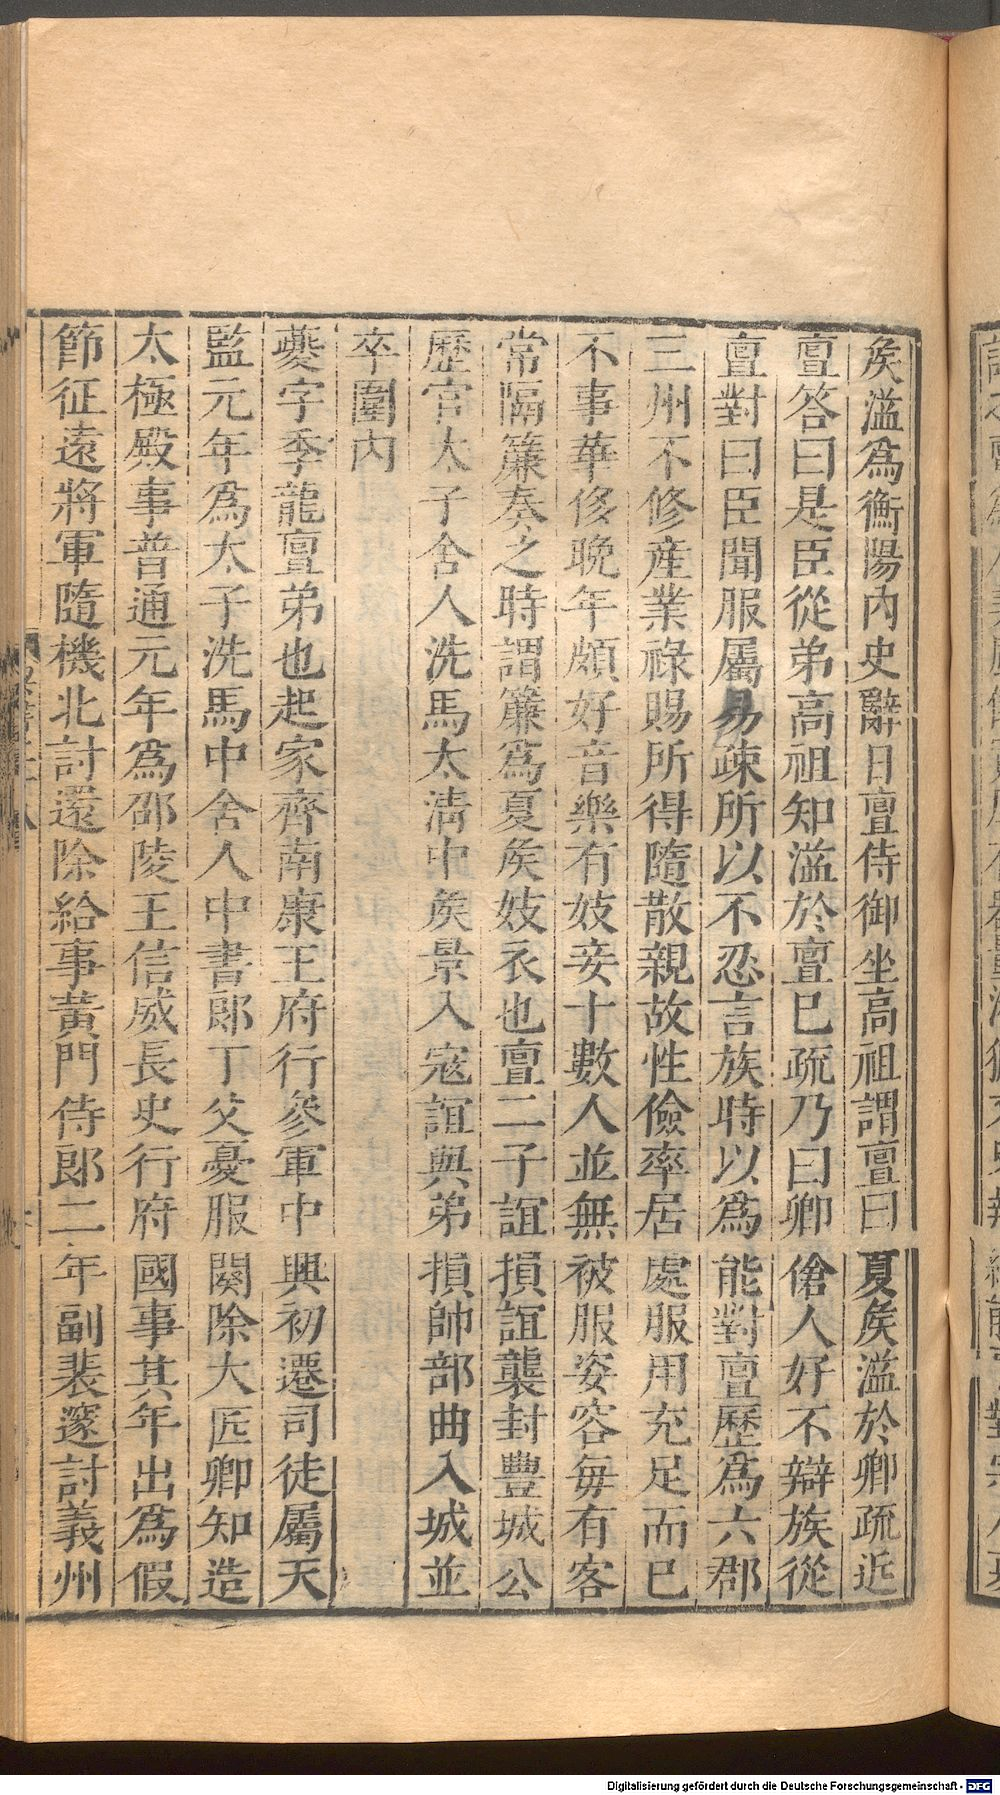 矦溢爲衡陽內史辭日亶侍御坐高祖謂亶曰夏矦溢於卿疏近
亶答曰是臣從弟高祖知溢於亶巳疏乃曰卿傖人好不辯族從
亶對曰臣聞服屬易疎所以不忍言族時以爲能對亶歷爲六郡
三州不修產業祿賜所得隨散親故性儉率居處服用充足而巳
不事華侈晚年頗好音樂有妓妾十數人並無被服姿容每有客
常隔簾奏之時謂簾爲夏矦妓衣也亶二子誼損誼襲封豐城公
歷官太子舍人洗馬太淸中矦景入寇誼與弟損帥部曲入城並
卒圍內
夔字季龍亶弟也起家齊南康王府行參軍中興初遷司徒屬天
監元年爲太子洗馬中舍人中書郎丁父憂服闋除大匠卿知造
太極殿事普通元年爲邵陵王信威長史行府國事其年出爲假
節征遠將軍隨機北討還除給事黃門侍郎二年副裴邃討義州
Digitalisierung gefördert durch die Deutsche Forschungsgemeinschaft - DFG